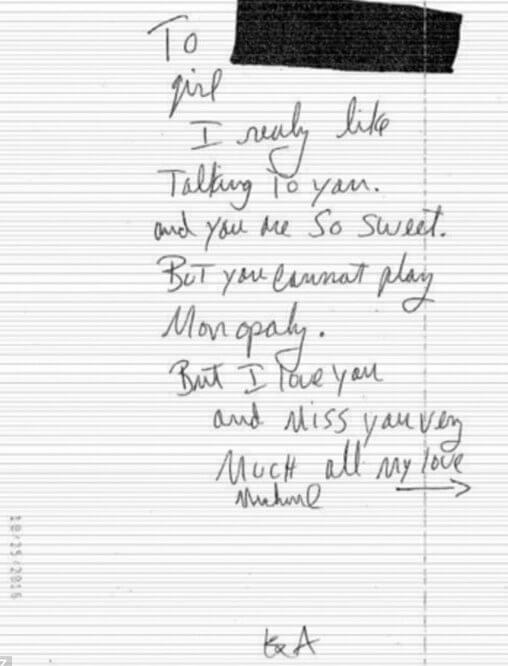 To
girl
I really like
Talking To you.
and you are So Sweet.
But you Cannot play
Monopoly.
But I love you
and Miss you very
Much all my love
Michael
10/25/2016